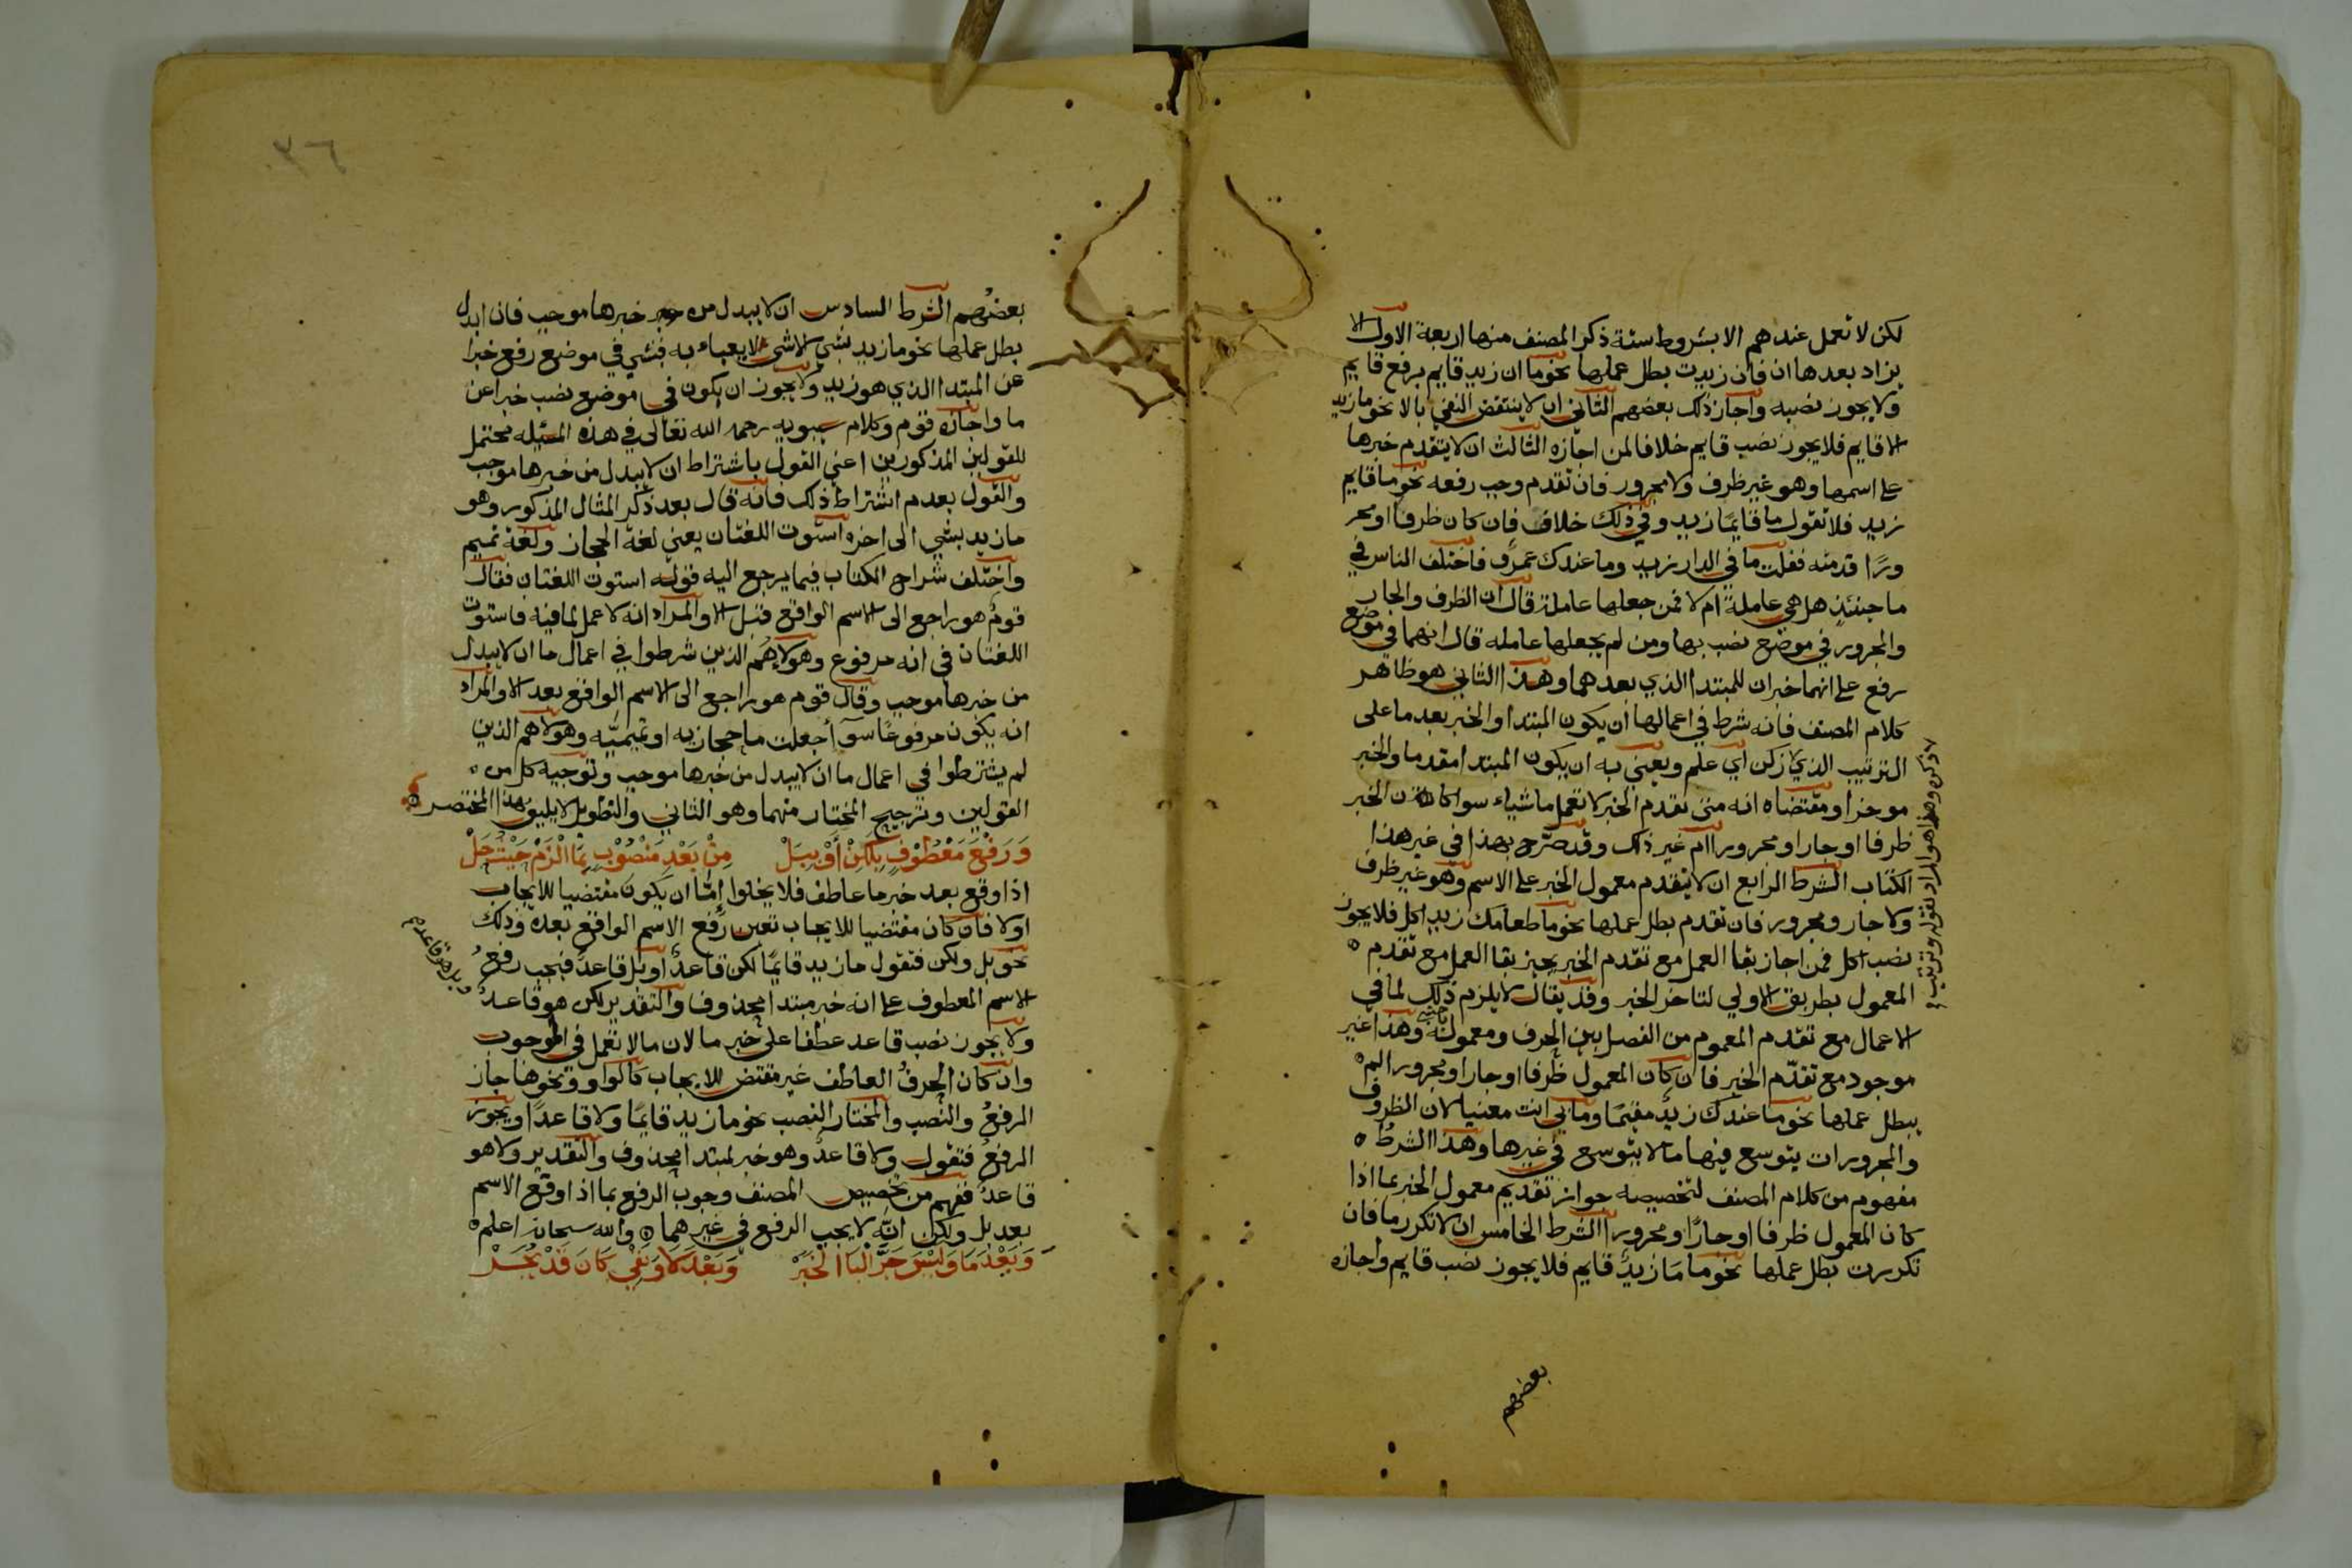 لكن لا تعمل عندهم الا بشروط ستة ذكر المصنف منها اربعة الاول الا
يزاد بعدها ان فان زيدت بطل عملها نحو ما ان زيد قايم برفع قايم
ولا يجوز نصبه واجاز ذلك بعضهم الثاني ان لا ينتقض النفي بالا نحو ما زيد
الا قايم فلا يجوز نصب قايم خلافا لمن اجازه الثالث ان لا يتقدم خبرها
على اسمها وهو غير ظرف ولا مجرور فان تقدم وجب رفعه نحو ما قايم
زيد فلا تقول ما قايمًا زيد وفي ذلك خلاف فان كان ظرفا او مجر
ورًا قدمته فقلت ما في الدار زيد وما عندك عمرو فاختلف الناس في
ما حينئذٍ هل هي عاملةً ام لا فمن جعلها عاملة قال ان الظرف والجار
والمجرور في موضع نصب بها ومن لم يجعلها عامله قال انهما في موضع
رفع على انهما خبران للمبتدا الذي بعدهما وهذا الثاني هو ظاهر
كلام المصنف فانه شرط في اعمالها ان يكون المبتدا والخبر بعد ما على
الترتيب الذي زكن اي علم ويعني به ان يكون المبتدا مقدما والخبر
موخرا ومقتضاه انه متى تقدم الخبر لا تعمل ما شياء سوا كان الخبر
ظرفا او جارا ومجرورا ام غير ذلك وقد صرح بهذا في غير هذا
الكتاب الشرط الرابع ان لا يتقدم معمول الخبر على الاسم وهو غير ظرف
ولا جار ومجرور فان تقدم بطل عملها نحو ما طعامك زيد اكل فلا يجوز
نصب اكل فمن اجاز بقا العمل مع تقدم الخبر يجيز بقا العمل مع تقدم
المعمول بطريق الاولي لتاخر الخبر وقد يقال لا يلزم ذلك لما في
الاعمال مع تقدم المعموم من الفصل بين الحرف ومعموله وهذا غير
موجود مع تقدّم الخبر فان كان المعمول ظرفا او جارا ومجرورا لم
يبطل عملها نحو ما عندك زيدٌ مقيمًا وما بي انت معنيا لان الظروف
والمجرورات يتوسع فيها ما لا يتوسع في غيرها وهذا الشرطُ
مفهوم من كلام المصنف لتخصيصه جواز تقديم معمول الخبر بما اذا
كان المعمول ظرفا او جارًا ومجرورا الشرط الخامس ان لا تكرر ما فان
تكررت بطل عملها نحو ما ما زيدٌ قايم فلا يجوز نصب قايم واجازه
بعضهم
بعضُهم الشرط السادس ان لا يبدل من خبرها موجب فان ابدل
بطل عملها نحو ما زيد بشي الا شي لا يعباء به فبشي في موضع رفع خبرا
عن المبتدا الذي هو زيد ولا يجوز ان يكون في موضع نصب خبرا عن
ما واجازه قوم وكلام سيبويه رحمه الله تعالى في هذه المسئله محتمل
للقولين المذكورين اعني القول باشتراط ان لا يبدل من خبرها موجب
والقول بعدم اشتراط ذلك فانه قال بعد ذكر المثال المذكور وهو
ما زيد بشي الى اخره استوت اللغتان يعني لغة الحجاز ولغة تميم
واختلف شراح الكتاب فيما يرجع اليه قوله استوت اللغتان فقال
قومٌ هو راجع الى الاسم الواقع قبل الا والمراد انه لا عمل لما فيه فاستوت
اللغتان في انه مرفوع وهولاء هم الذين شرطوا في اعمال ما ان لا يبدل
من خبرها موجب وقال قوم هو راجع الى الاسم الواقع بعد الا والمراد
انه يكون مرفوعًا سوآ أجعلت ما حجازيه او تميميّه وهولا هم الذين
لم يشترطوا في اعمال ما ان لا يبدل من خبرها موجب وتوجيه كل من
القولين وترجيح المختار منهما وهو الثاني والتطويل لا يليق بهذا المختصر
وَرَفْعَ مَعْطُوفٍ بِلَكِنْ أَوْ بِبَلْ مِنْ بَعْدِ مَنْصُوْبٍ بِمَا الْزَمْ حَيْثُ حَلْ
اذا وقع بعد خبر ما عاطف فلا يخلوا إمّا ان يكون مقتضيا للايجاب
او لا فان كان مقتضيا للايجاب تعين رفع الاسم الواقع بعده وذلك
نحو بل ولكن فتقول ما زيد قايمًا لكن قاعدٌ او بل قاعدٌ فيجب رفعُ
الاسم المعطوف على انه خبر مبتدا محذوف والتقدير لكن هو قاعدٌ
وبل هو قاعدٌ
ولا يجوز نصب قاعد عطفا على خبر ما لان ما لا تعمل في الموجب
وان كان الحرفُ العاطف غير مقتض للايجاب كالواو ونحوها جاز
الرفعُ والنصب والمختار النصب نحو ما زيد قايمًا ولا قاعدًا ويجوز
الرفعُ فتقول ولا قاعدٌ وهو خبر لمبتدا محذوف والتقدير ولا هو
قاعدٌ ففهم من تخصيص المصنف وجوب الرفع بما اذا وقع الاسم
بعد بل ولكن انه لا يجب الرفع في غيرهما والله سبحانه اعلم
وَبَعْدَ مَا وَلَيْسَ جَرَّ الْبَا الْخَبَرْ وَبَعْدَ لَا وَنَفْيِ كَانَ قَدْ يُجَرْ